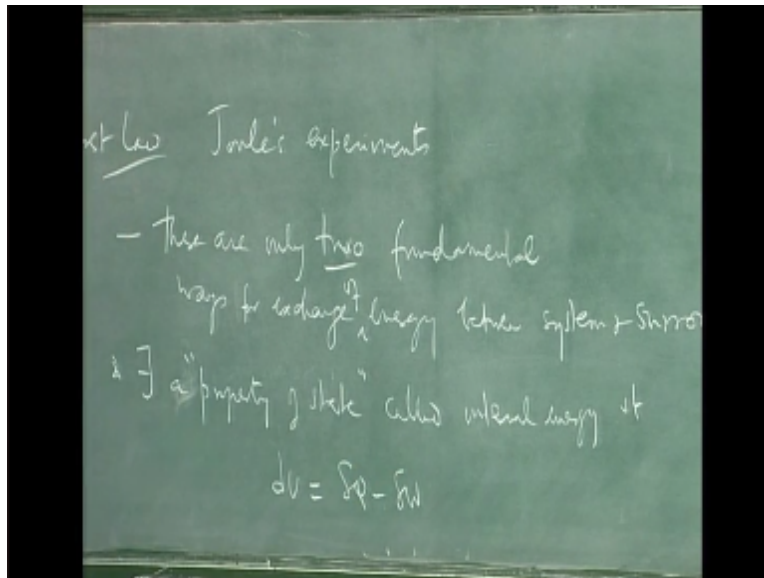 st Law Joule's experiments
- There are only two fundamental
ways for exchange of energy between system & Surro
∃ a "property of state" called internal energy st
dU = δQ - δW